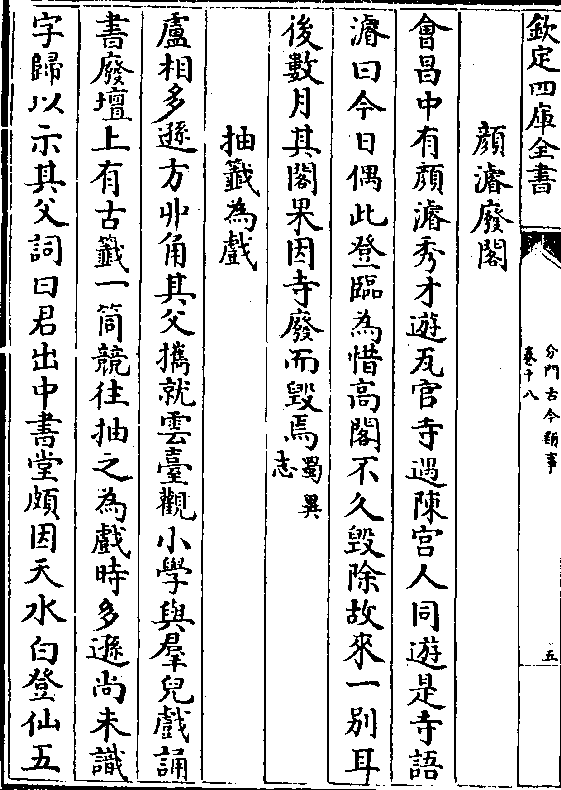 欽定四庫全書
分門古今類事
卷十八
五
顔濬廢閣
會昌中有顔濬秀才遊瓦官寺遇陳宫人同遊是寺語
濬曰今日偶此登臨為惜高閣不久毁除故來一别耳
後數月其閣果因寺廢而毁焉蜀異志
抽籤為戲
盧相多遜方丱角其父攜就雲臺觀小學與羣兒戲誦
書廢壇上有古籤一筒競往抽之為戲時多遜尚未識
字歸以示其父詞曰君出中書堂頗因天水白登仙五